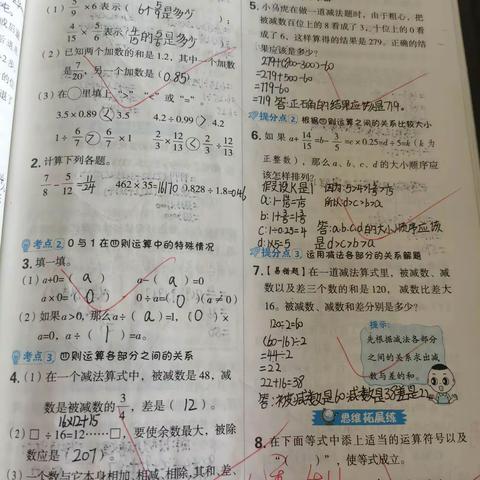 (1) 5/9×6表示( 6个5/9是多少 )
4/15×5/6表示( 4/15的5/6是多少 )
(2) 已知两个加数的和是1.2,其中一个加数
是7/20,另一个加数是( 0.85 )
(3) 在○里填上“>”“<”或“=”
3.5×0.89 < 3.5 4.2÷0.99 > 4.2
1÷6/7 > 6/7×1 2/3×12/13 < 2/3÷12/13
2. 计算下列各题。
7/8-5/12=11/24 462×35=16170 0.828÷1.8=0.46
考点2 0与1在四则运算中的特殊情况
3. 填一填。
(1) a+0=( a ) a-( a )=0
a×0=( 0 ) 0÷a=( 0 )(a≠0)
(2) 如果a>0,那么a÷( a )=1,( 0 )×
a=0,a÷( 1 )=a。
考点3 四则运算各部分之间的关系
4. (1) 在一个减法算式中,被减数是48,减
数是被减数的3/4,差是( 12 )。
16×12+15
(2) □÷16=12……□,要使余数最大,被除
数应是( 207 )。
(3) 一个数与它本身相加、相减、相除,其和、差、
5. 小马虎在做一道减法题时,由于粗心,把
被减数百位上的8看成了3,十位上的0看
成了6,这样算得的结果是279。正确的结
果应该是多少?
279+(800-300)-60
=279+500-60
=779-60
=719 答:正确的结果应该是719。
提分点2 根据四则运算之间的关系比较大小
6. 如果a÷14/15=b-1/3=c×0.25=d÷5=k(k为
正整数),那么a、b、c、d的大小顺序应
该怎样排列?
提分点3 运用减法各部分的关系解题
7. 【易错题】在一道减法算式里,被减数、减
数以及差三个数的和是120,减数比差大
16。被减数、减数和差分别是多少?
120÷2=60
(60-16)÷2
=44÷2
=22
22+16=38
答:被减数是60,减数是38,差是22
提示:
先根据减法各部分
之间的关系求出减
数与差的和。
思维拓展练
8. 在下面等式中添上适当的运算符号以及
“( )”,使等式成立。